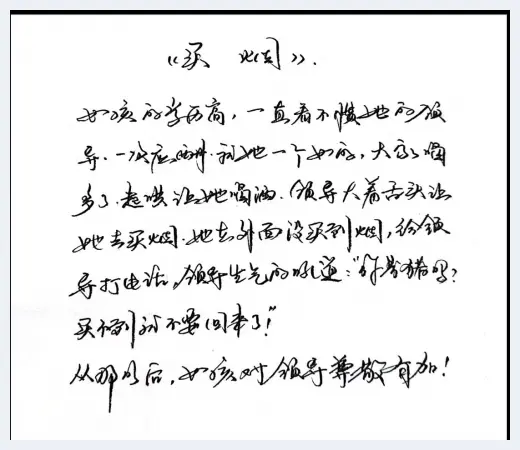 《买 烟》.
女孩的学历高，一直看不惯她的领
导.一次应酬.就她一个女的，大家喝
多了.起哄让她喝酒.领导大着舌头让
她去买烟.她去外面没买到烟，给领
导打电话，领导生气的吼道："你养猪吗？
买不到就不要回来了！"
从那以后，女孩对领导尊敬有加！